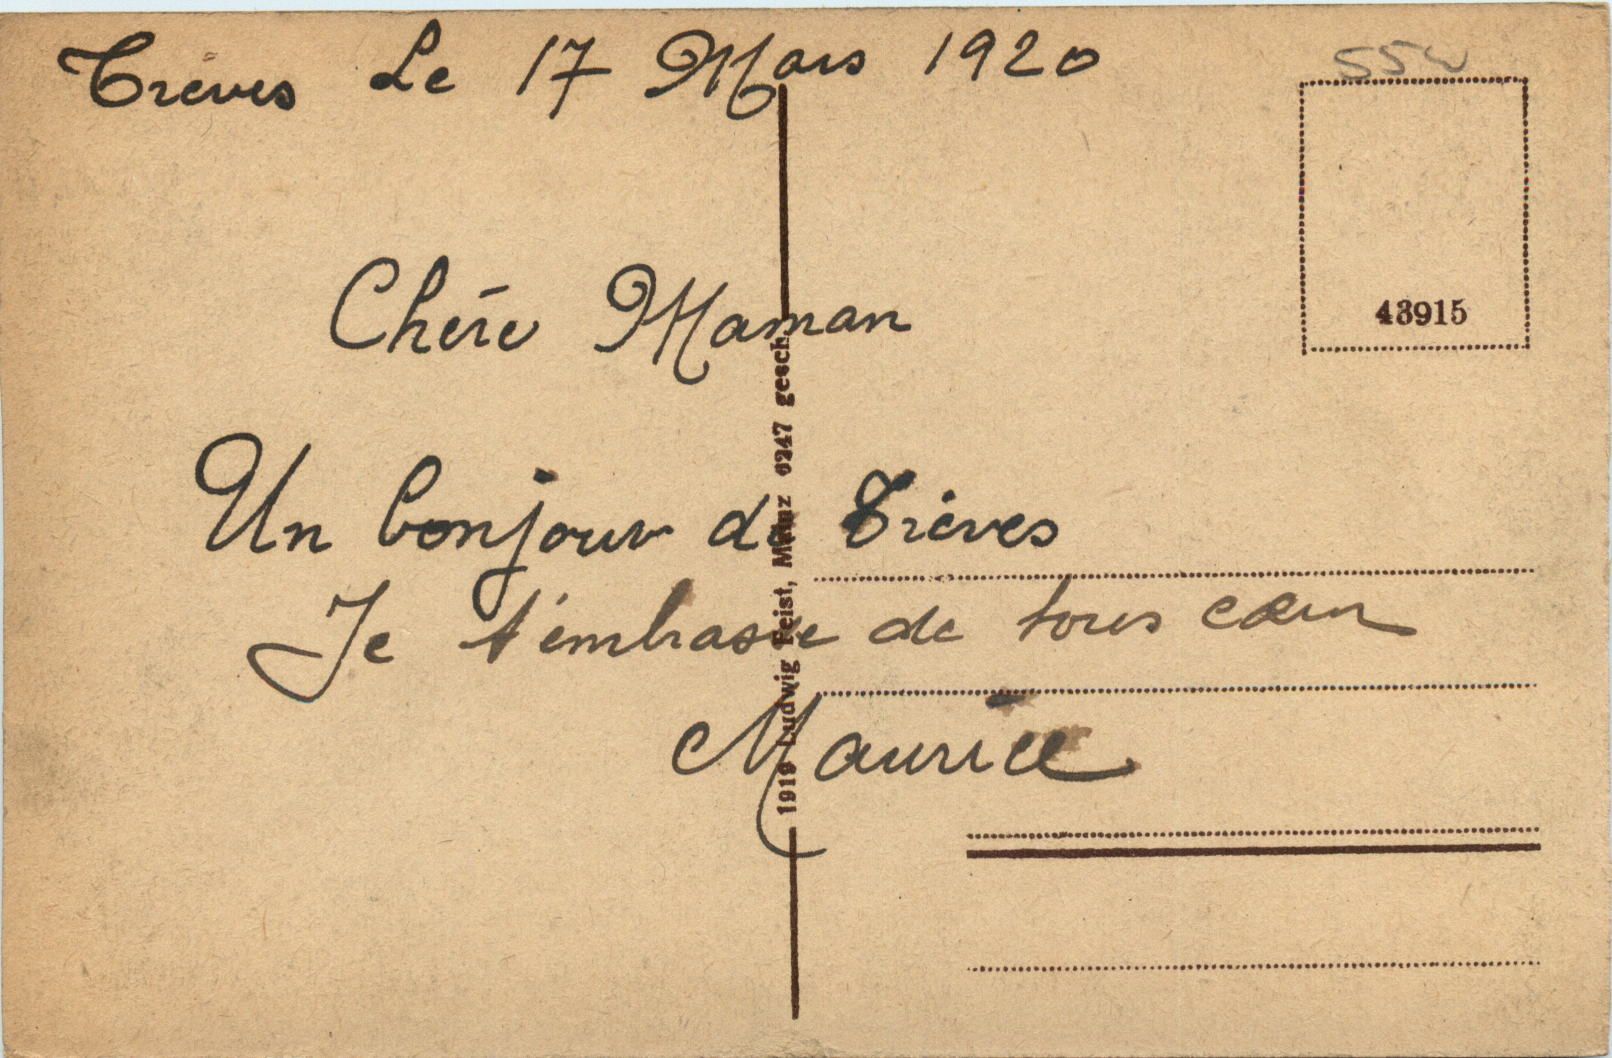 Trèves Le 17 Mars 1920
55
43915
Chère Maman
Un bonjour de Trèves
Je t'embrasse de tous cœur
Maurice
1919 Ludwig Feist, Mainz 6247 gesch.